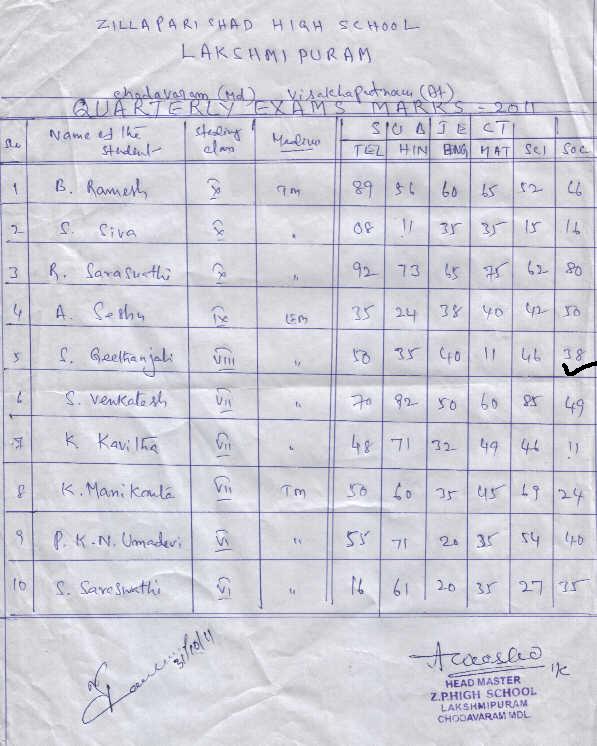 ZILLAPARISHAD HIGH SCHOOL
LAKSHMIPURAM
chodavaram (Md) Visakhapatnam (Dt)
QUARTERLY EXAMS MARKS - 2011
SUBJECT
Name of the student Studing class Medium TEL HIN ENG MAT SCI SOC
1 B. Ramesh X TM 89 56 60 65 52 66
2 S. Siva X " 08 11 35 35 15 16
3 R. Saraswathi X " 92 73 65 75 62 80
4 A. Seshu IX EM 35 24 38 40 42 50
5 S. Geethanjali VIII " 50 35 40 11 46 38
6 S. Venkatesh VII " 70 92 50 60 85 49
7 K Kavitha VII " 48 71 32 49 46 11
8 K. Manikanta VII TM 50 60 35 45 69 24
9 P. K. N. Umadevi VI " 55 71 20 35 54 40
10 S. Saraswathi VI " 16 61 20 35 27 35
31/10/11
HEAD MASTER
Z.P.HIGH SCHOOL
LAKSHMIPURAM
CHODAVARAM MDL.